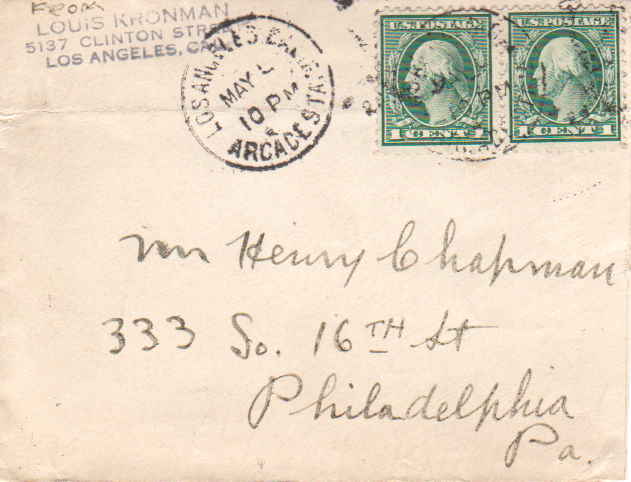 From
LOUIS KRONMAN
5137 CLINTON STREET
LOS ANGELES, CAL.
LOS ANGELES CALIF.
MAY
10 PM
ARCADE STA.
U.S. POSTAGE
1 CENT 1
U.S. POSTAGE
1 CENT 1
Mr Henry Chapman
333 So. 16TH St
Philadelphia
Pa.